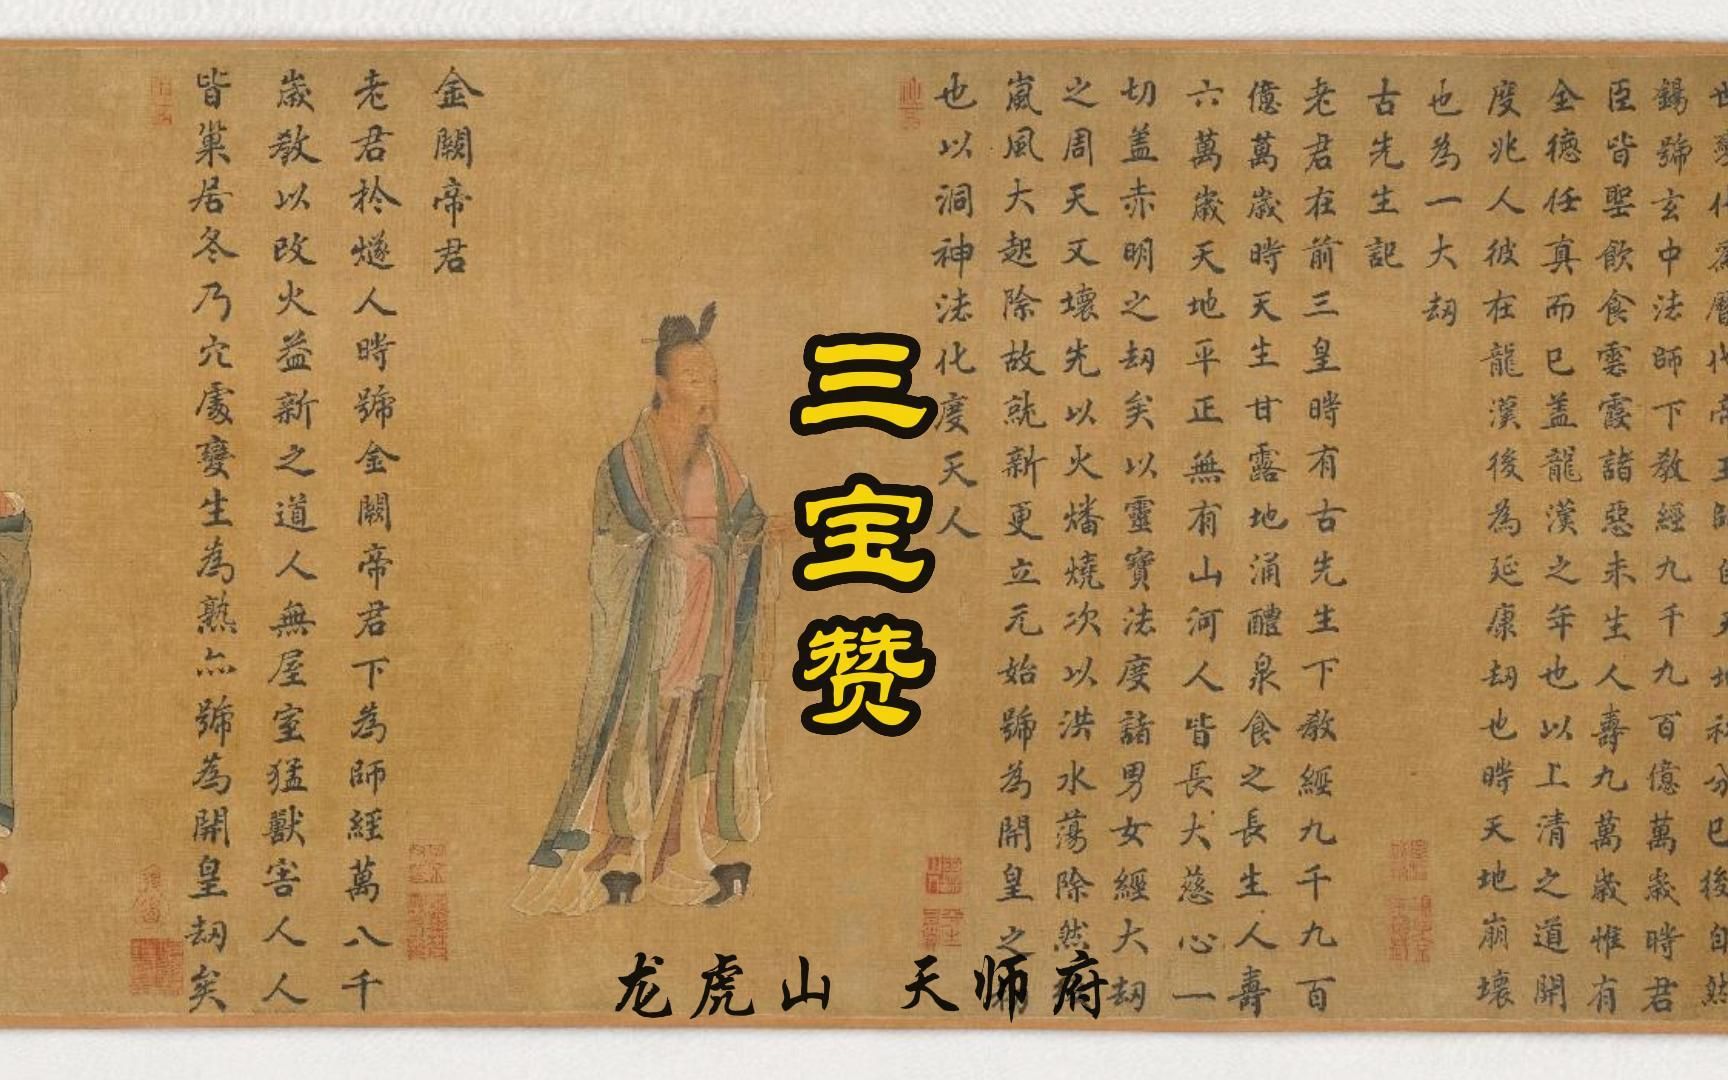 錫號玄中法師下教經九千九百億萬歲時君
臣皆聖飲食雲霞諸惡未生人壽九萬歲惟有
全德任真而已盖龍漢之年也以上清之道開
度兆人彼在龍漢後為延康劫也時天地崩壞
也為一大劫
古先生記
老君在前三皇時有古先生下教經九千九百
億萬歲時天生甘露地涌醴泉食之長生人壽
六萬歲天地平正無有山河人皆長大慈心一
切盖赤明之劫矣以靈寶法度諸男女經大劫
之周天又壞先以火燔燒次以洪水蕩除然
嵐風大起除故就新更立元始號為開皇之
也以洞神法化度天人
三宝赞
金闕帝君
老君於燧人時號金闕帝君下為師經萬八千
歲教以改火益新之道人無屋室猛獸害人人
皆巢居冬乃穴處變生為熟亦號為開皇劫矣
龙虎山 天师府